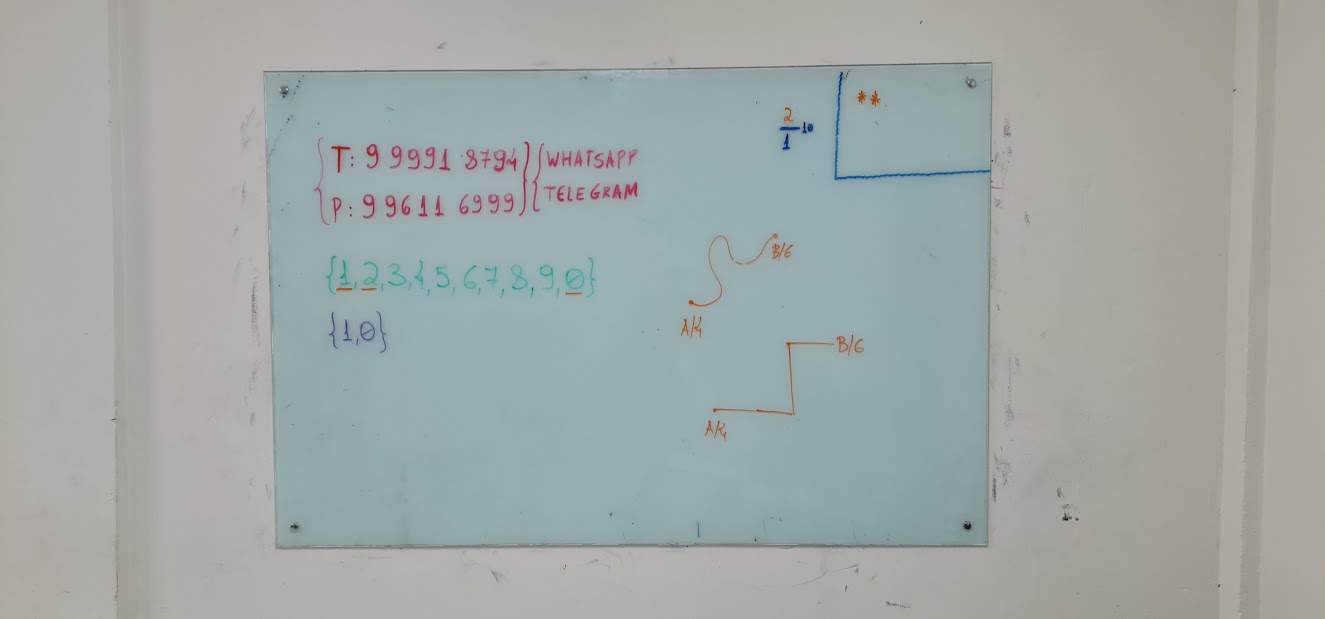 { T: 9 9991 8794 } { WHATSAPP
{ P: 9 9611 6999 } { TELEGRAM
{1,2,3,4,5,6,7,8,9,0}
{1,0}
2
1
10
**
B/G
A/4
B/G
A/4